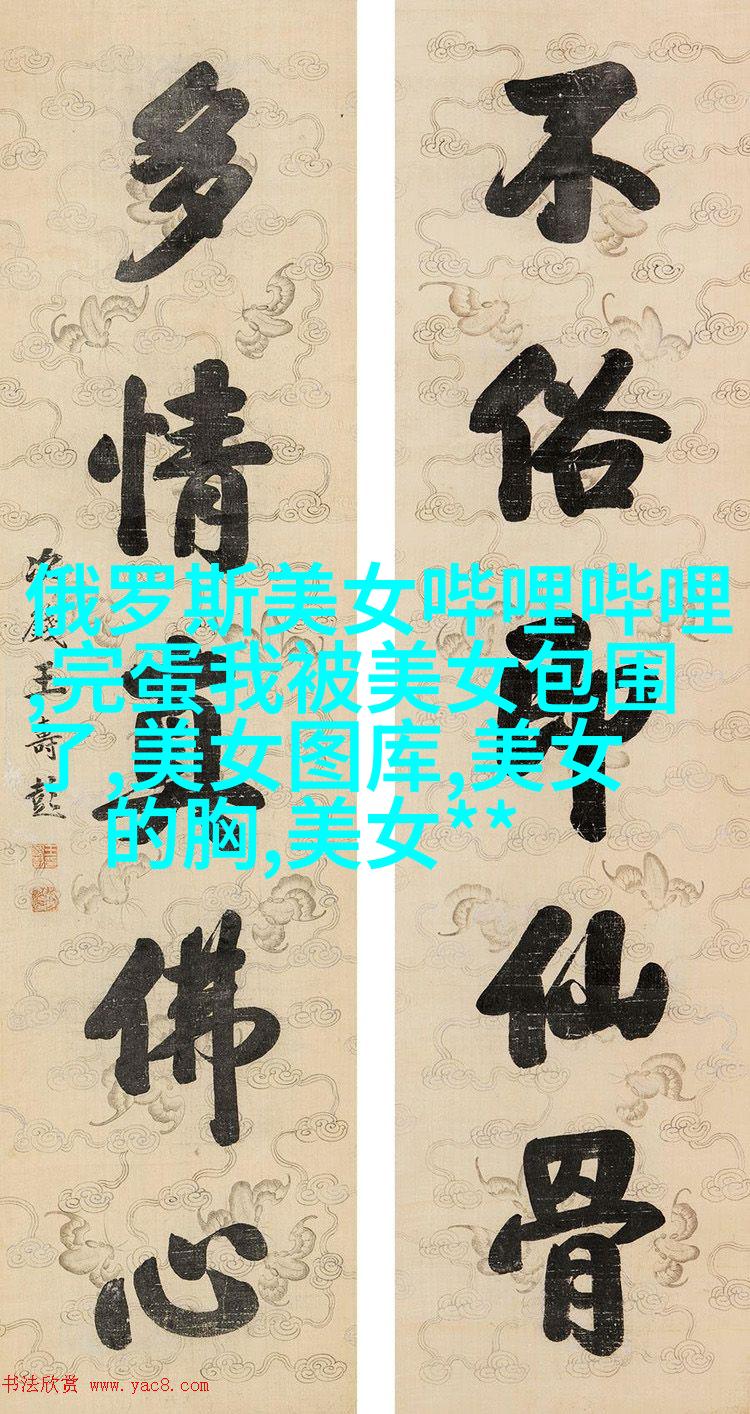 不俗即仙骨
多情真佛心
王壽彭
俄罗斯美女哔哩哔哩
,完蛋我被美女包围
了,美女图库,美女
的胸,美女**
书法欣赏 www.yac8.com